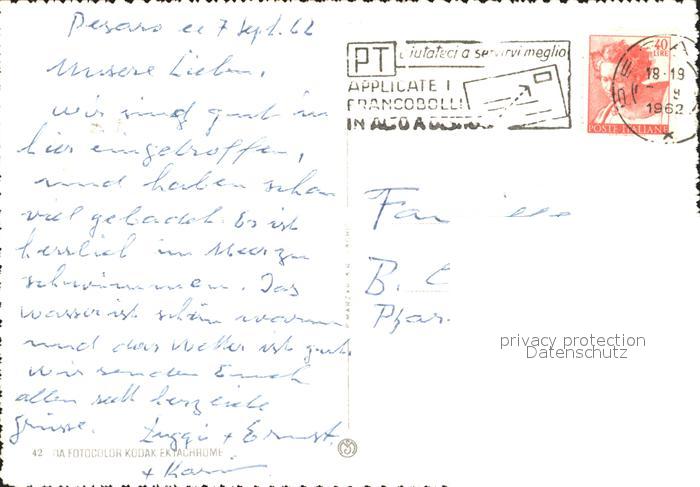 Pesaro le 7 Sept. 62
Unsere Lieben,
wir sind gut in
hier eingetroffen,
und haben schon
viel gebadet. Es ist
herrlich im Meer zu
schwimmen. Das
wasser ist schön warm
und das Wetter ist gut.
wir senden Euch
allen recht herzliche
grüsse.
+ Ernst.
+ Karin
PT iutateci a servirvi meglio
APPLICATE I
FRANCOBOLLI
IN ALTO A
40
LIRE
POSTE ITALIANE
18-19
9
1962
Fam
B.
Pfar.
privacy protection
Datenschutz
42 IA FOTOCOLOR KODAK EKTACHROME